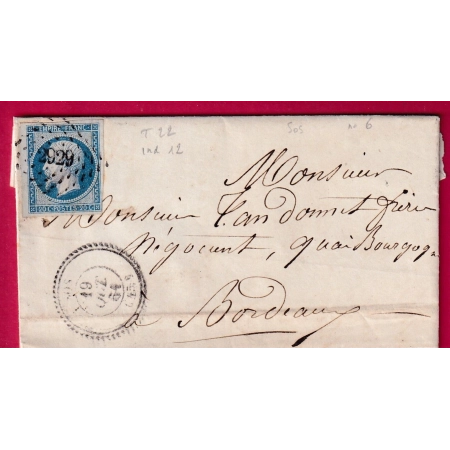 EMPIRE FRANC
2929
20 C. POSTES 20 C.
T 22 Sos n° 6
ind 12
Monsieur
Monsieur Tandonnet frère
Négociant, quai Bourgogne
à Bordeaux
SOS
19
54